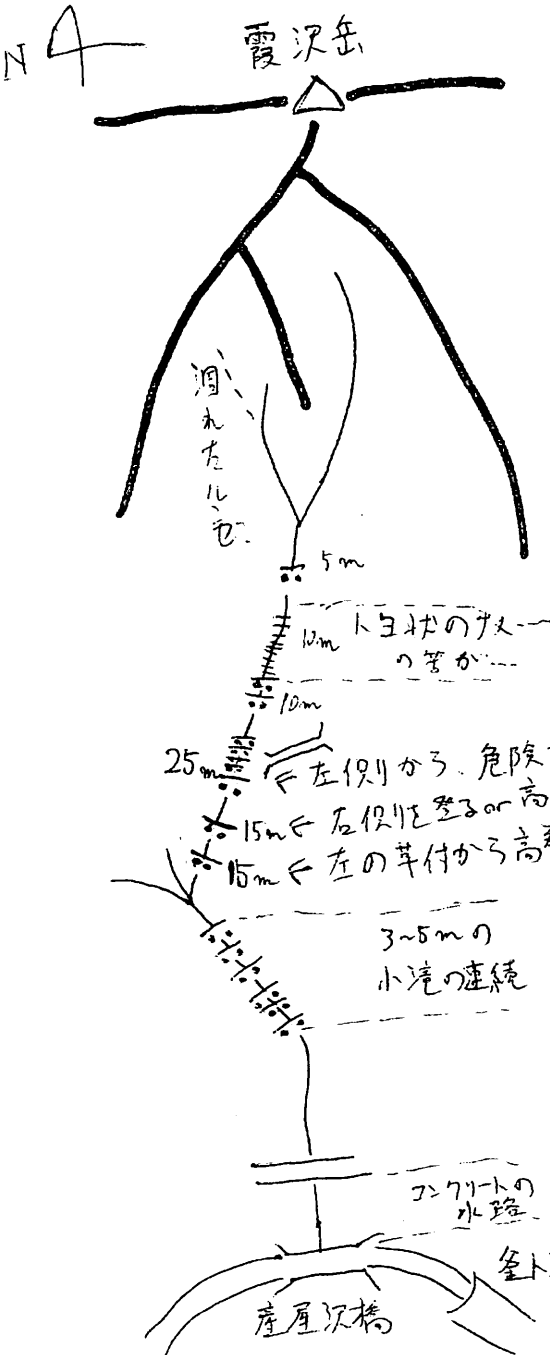 N
霞沢岳
涸れたルンゼ
5m
10m トヨ状のナメ
の筈が…
10m
25m ← 左側から、危険
15m ← 右側を登る or 高
15m ← 左の草付から高
3~5mの
小滝の連続
コンクリートの
水路
釜ト
産屋沢橋